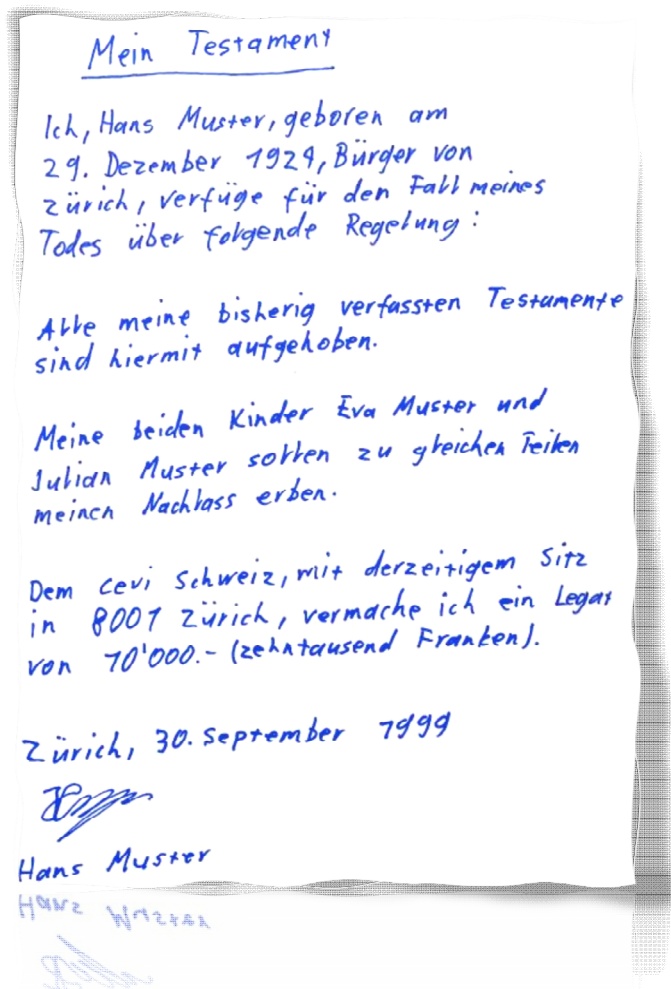 Mein Testament
Ich, Hans Muster, geboren am
29. Dezember 1924, Bürger von
Zürich, verfüge für den Fall meines
Todes über folgende Regelung:
Alle meine bisherig verfassten Testamente
sind hiermit aufgehoben.
Meine beiden Kinder Eva Muster und
Julian Muster sollen zu gleichen Teilen
meinen Nachlass erben.
Dem Cevi Schweiz, mit derzeitigem Sitz
in 8001 Zürich, vermache ich ein Legat
von 10'000.- (zehntausend Franken).
Zürich, 30. September 1999
Hans Muster